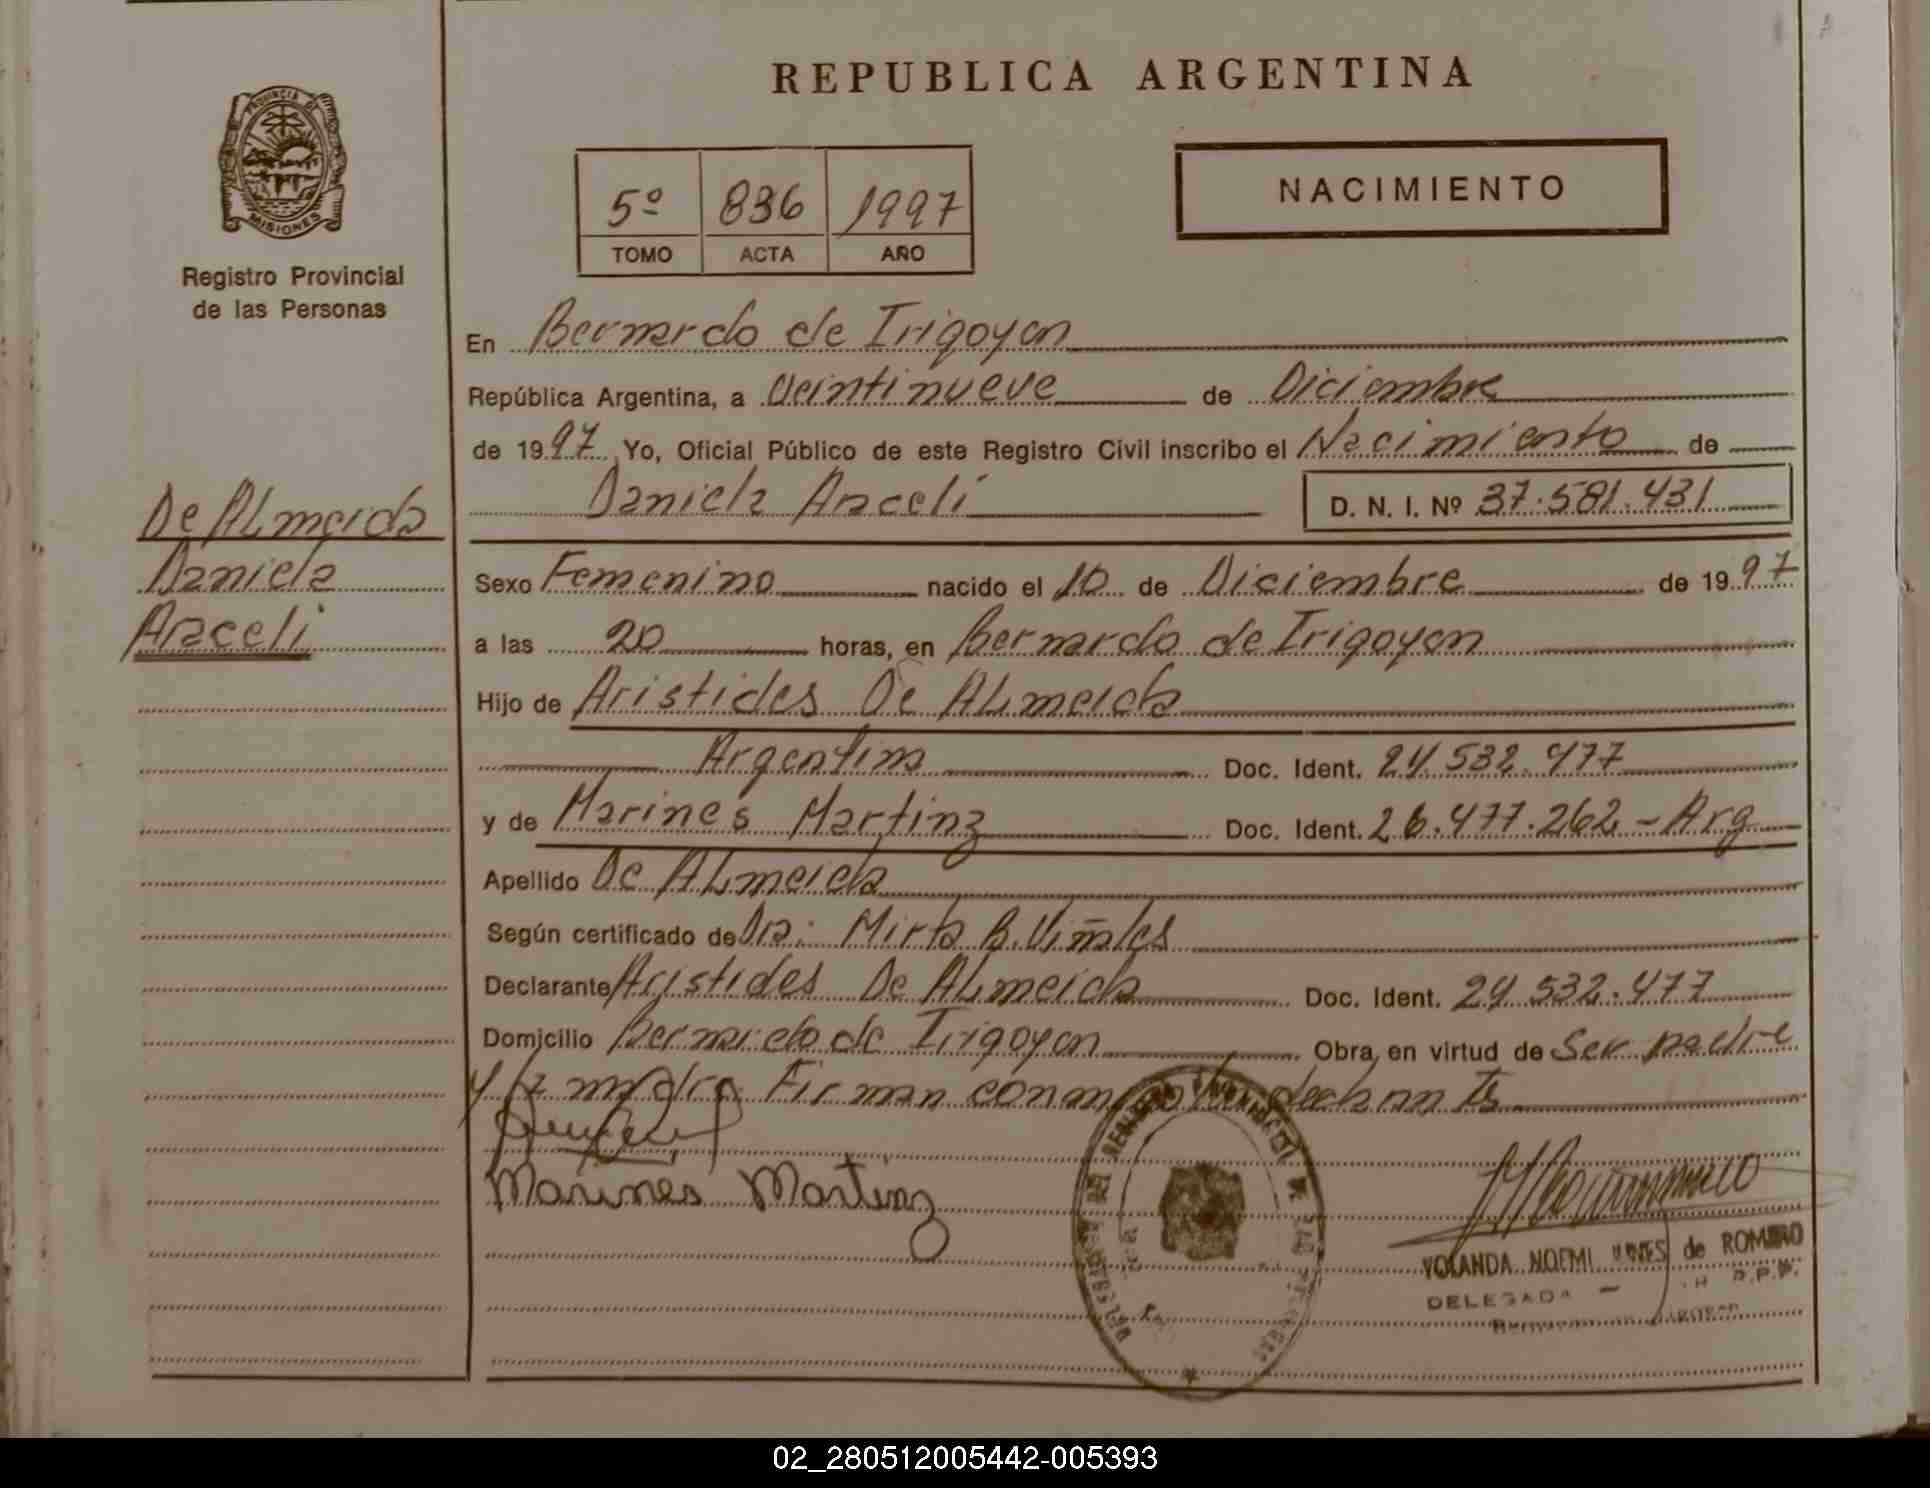 REPUBLICA ARGENTINA
PROVINCIA DE
MISIONES
Registro Provincial
de las Personas
5º 836 1997
TOMO ACTA AÑO
NACIMIENTO
De ALmeida
Daniela
Araceli
En Bernardo de Irigoyen
República Argentina, a Veintinueve de Diciembre
de 1997 Yo, Oficial Público de este Registro Civil inscribo el Nacimiento de
Daniela Araceli D. N. I. Nº 37.581.431
Sexo Femenino nacido el 10 de Diciembre de 1997
a las 20 horas, en Bernardo de Irigoyen
Hijo de Aristides De ALmeida
Argentina Doc. Ident. 24.532.477
y de Marines Martinz Doc. Ident. 26.477.262 - Arg
Apellido De ALmeida
Según certificado de Dra: Mirta B. Viñales
Declarante Aristides De ALmeida Doc. Ident. 24.532.477
Domicilio Bernardo de Irigoyen Obra, en virtud de Ser padre
y la madre Firman
Marines Martinz
YOLANDA NOEMI de ROMERO
DELEGADA R.P.P.
02_280512005442-005393